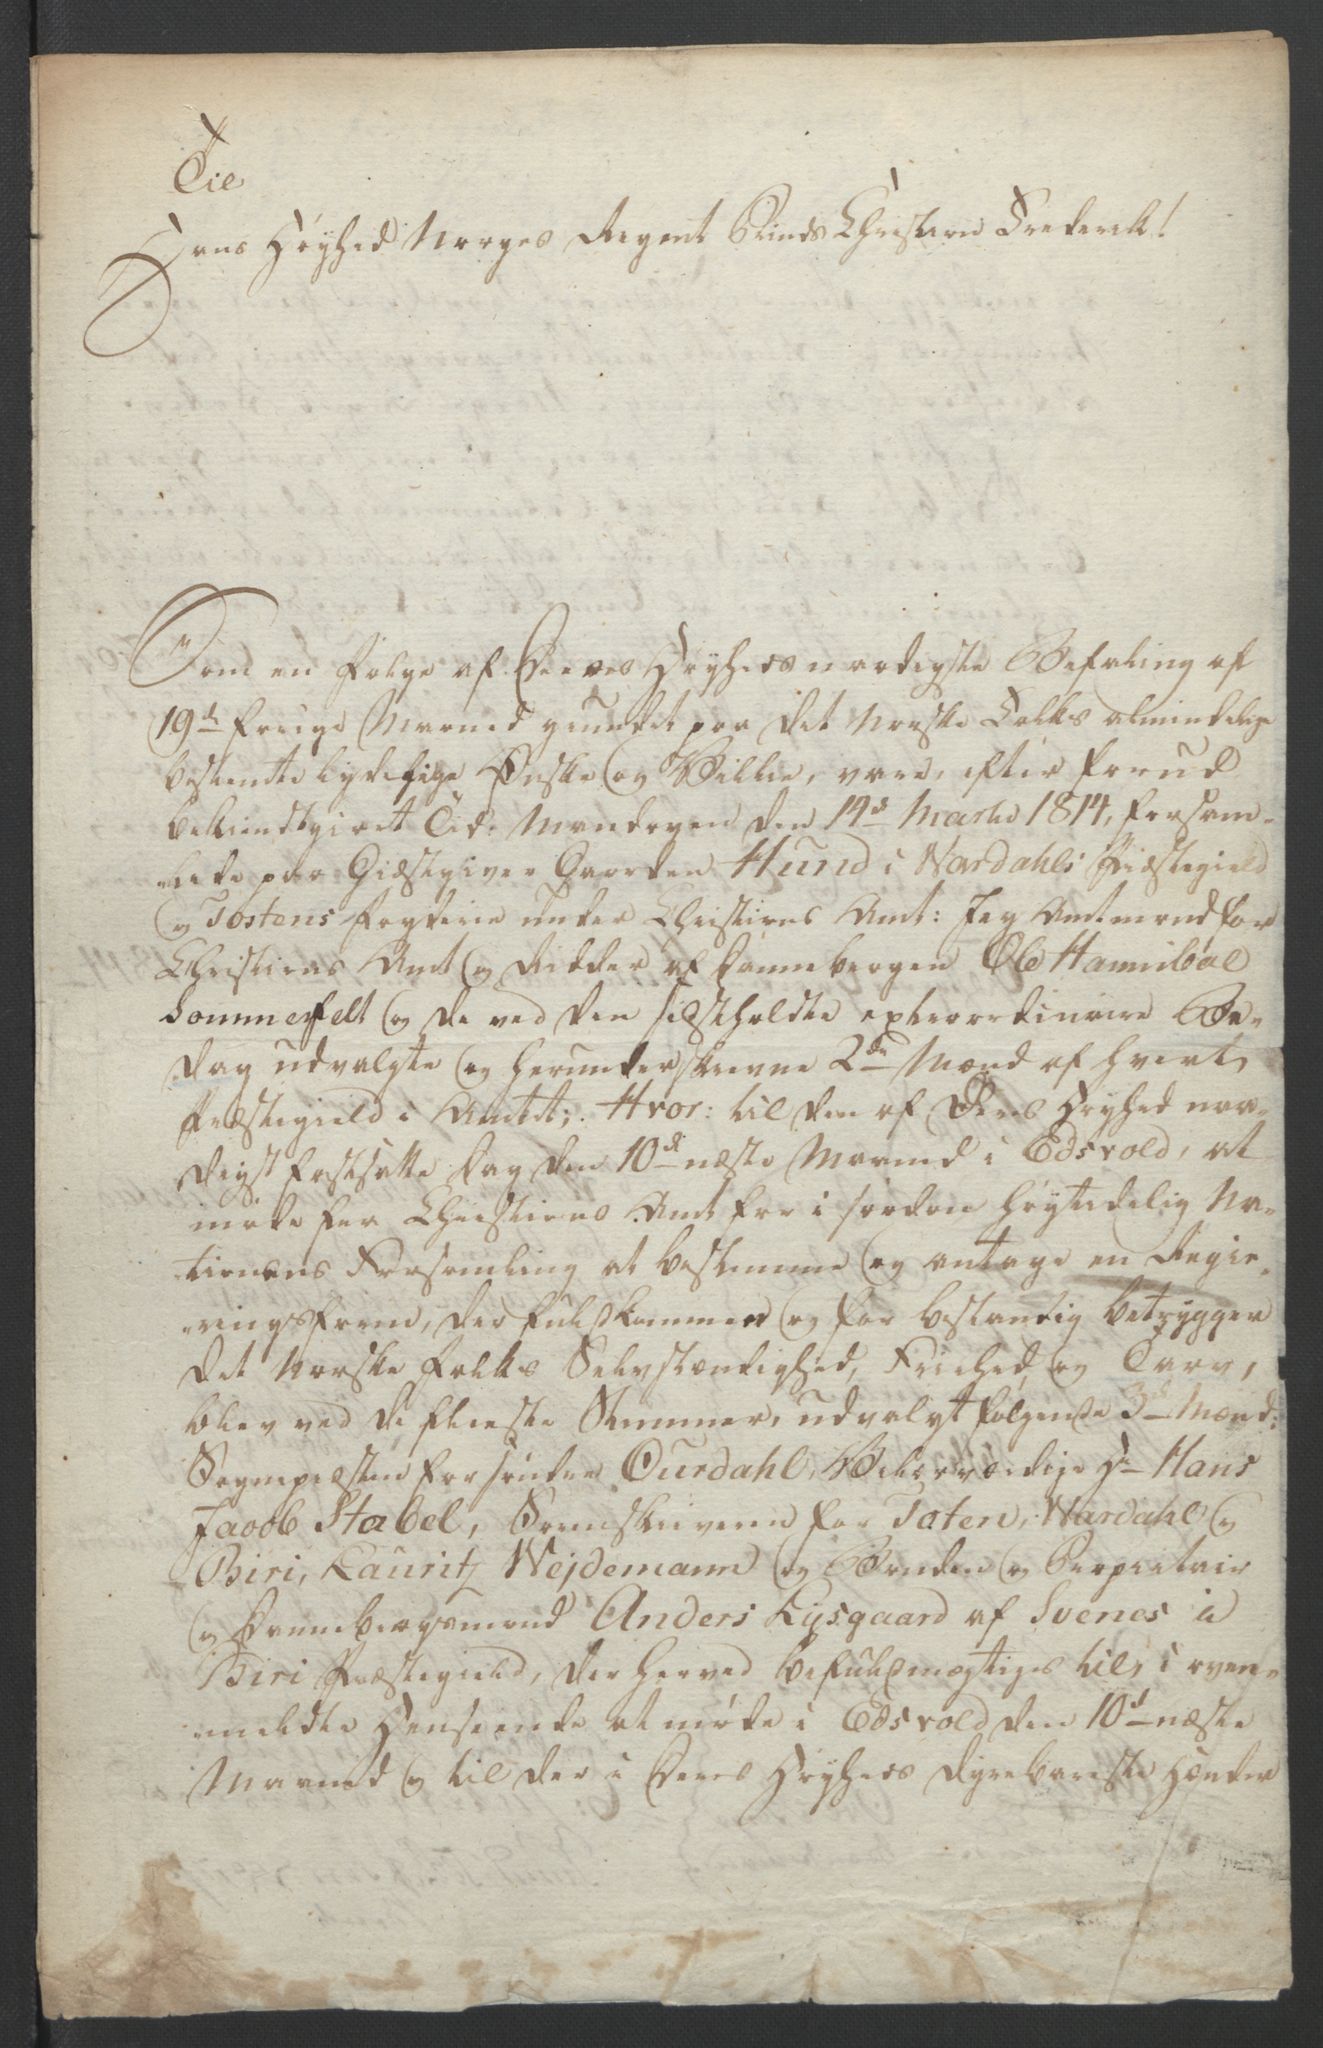 Til
Hans Høyhed Norges Regent Prinds Christian Frederik!
Som en Følge af Deres Høyheds naadigste Befaling af
19d forrige Maaned grundet paa det Norske Folks almindelige
bestemte lydelige Ønske og Villie, vare, efter forud
bekiendtgiort Tid, Mandagen den 14d Martii 1814, forsam-
lede paa Giæstgiver Gaarden Hund i Wardahls Præstegield
og Totens Fogderie under Christians Amt: Jeg Amtmand for
Christians Amt og Ridder af Dannebrogen Ole Hannibal
Sommerfelt og de ved den sidstholdte extraordinaire Be-
dag udvalgte og herunderskrevne 2de Mænd af hvert
Præstegield i Amtet; Hvor: til den af Deres Høyhed naa-
digst fastsatte Dag den 10d næste Maaned i Edsvold, at
møde for Christians Amt for i saadan høytidelig Na-
tionens Forsamling at bestemme og antage en Regie-
ringsform, der fuldkommen og for bestandig betrygger
det Norske Folks Selvstændighed, Friehed og Tarv,
blev ved de fleeste Stemmer, udvalgt følgende 3d Mænd:
Sognepræsten for søndre Ourdahl, Velærværdige Hr Hans
Jacob Stabel, Sorenskriveren for Toten, Wardahl og
Biri, Lauritz Weidemann og Bonden og Proprietair
og Dannebrogsmand Anders Lysgaard af Svenes i
Biri Præstegield, der herved befuldmægtiges til, i oven-
meldte Henseende at møde i Edsvold den 10d næste
Maaned og til der i Deres Høyheds dyrebareste Hænder